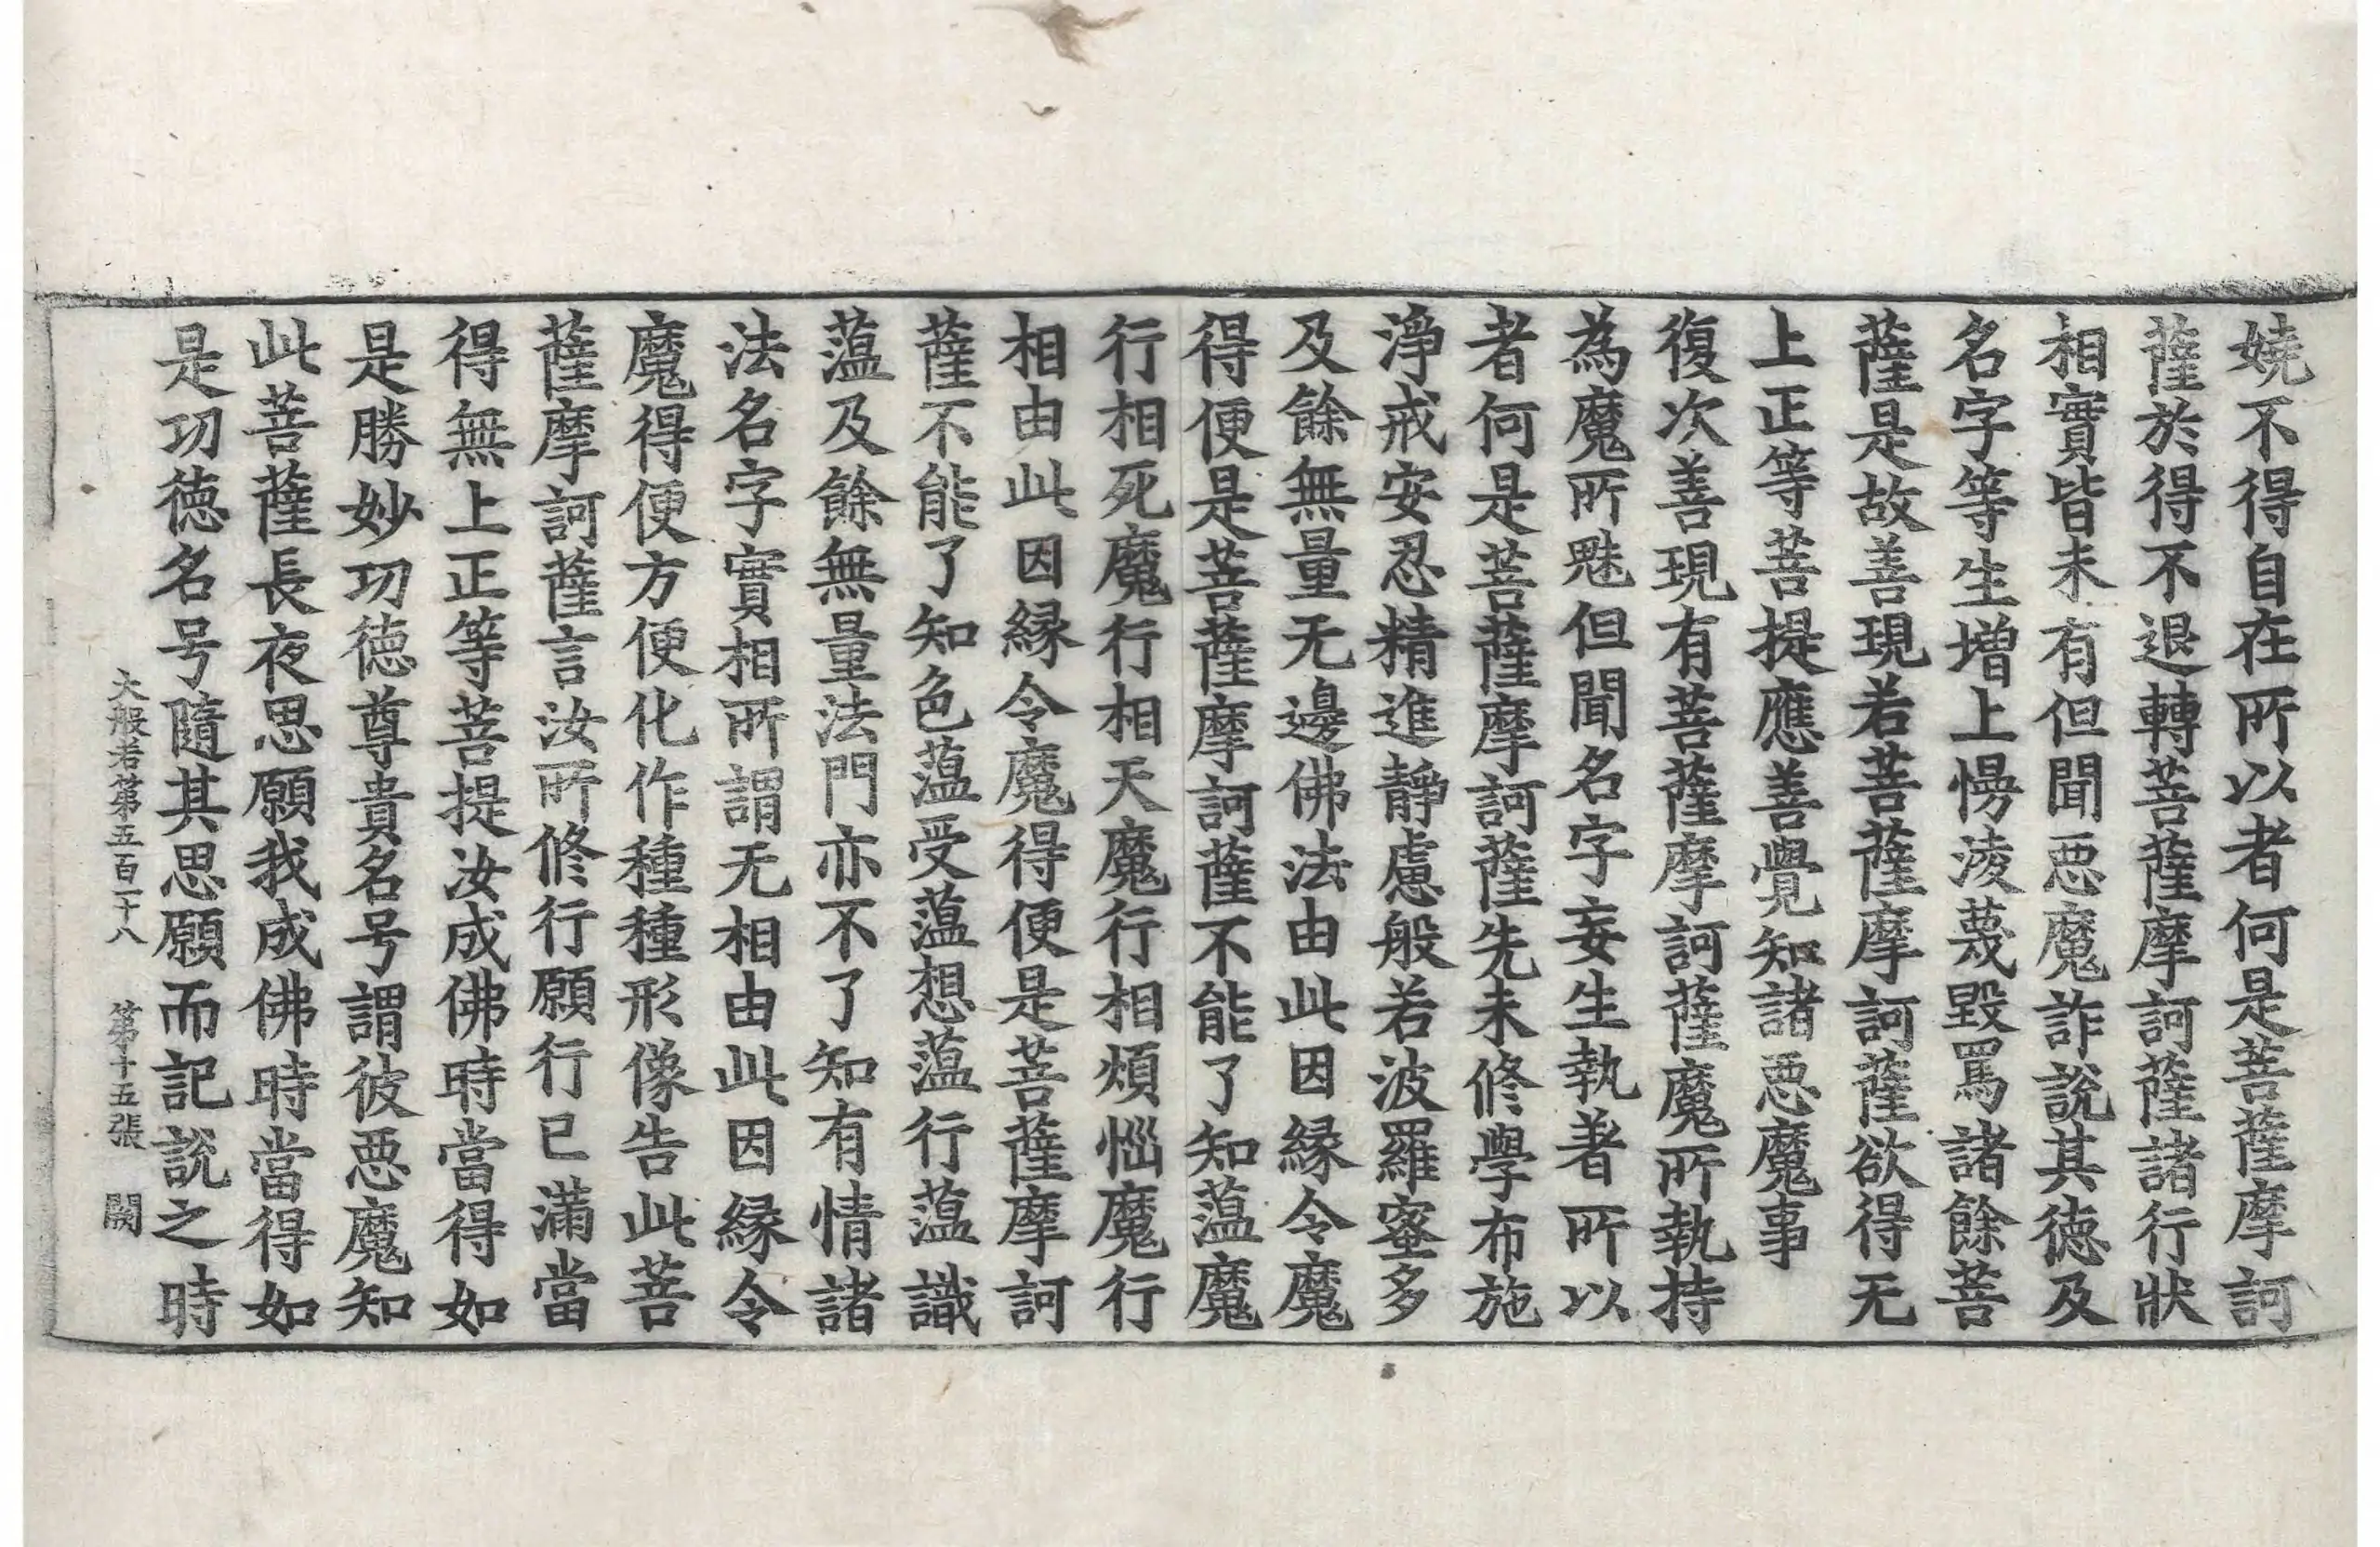 嬈不得自在所以者何是菩薩摩訶
薩於得不退轉菩薩摩訶薩諸行狀
相實皆未有但聞惡魔詐說其德及
名字等生增上慢淩蔑毀罵諸餘菩
薩是故善現若菩薩摩訶薩欲得无
上正等菩提應善覺知諸惡魔事
復次善現有菩薩摩訶薩魔所執持
為魔所魅但聞名字妄生執著所以
者何是菩薩摩訶薩先未修學布施
淨戒安忍精進靜慮般若波羅蜜多
及餘無量无邊佛法由此因緣令魔
得便是菩薩摩訶薩不能了知蘊魔
行相死魔行相天魔行相煩惱魔行
相由此因緣令魔得便是菩薩摩訶
薩不能了知色蘊受蘊想蘊行蘊識
蘊及餘無量法門亦不了知有情諸
法名字實相所謂无相由此因緣令
魔得便方便化作種種形像告此菩
薩摩訶薩言汝所修行願行已滿當
得無上正等菩提汝成佛時當得如
是勝妙功德尊貴名号謂彼惡魔知
此菩薩長夜思願我成佛時當得如
是功德名号隨其思願而記說之時
大般若第五百一十八 第十五張 闕